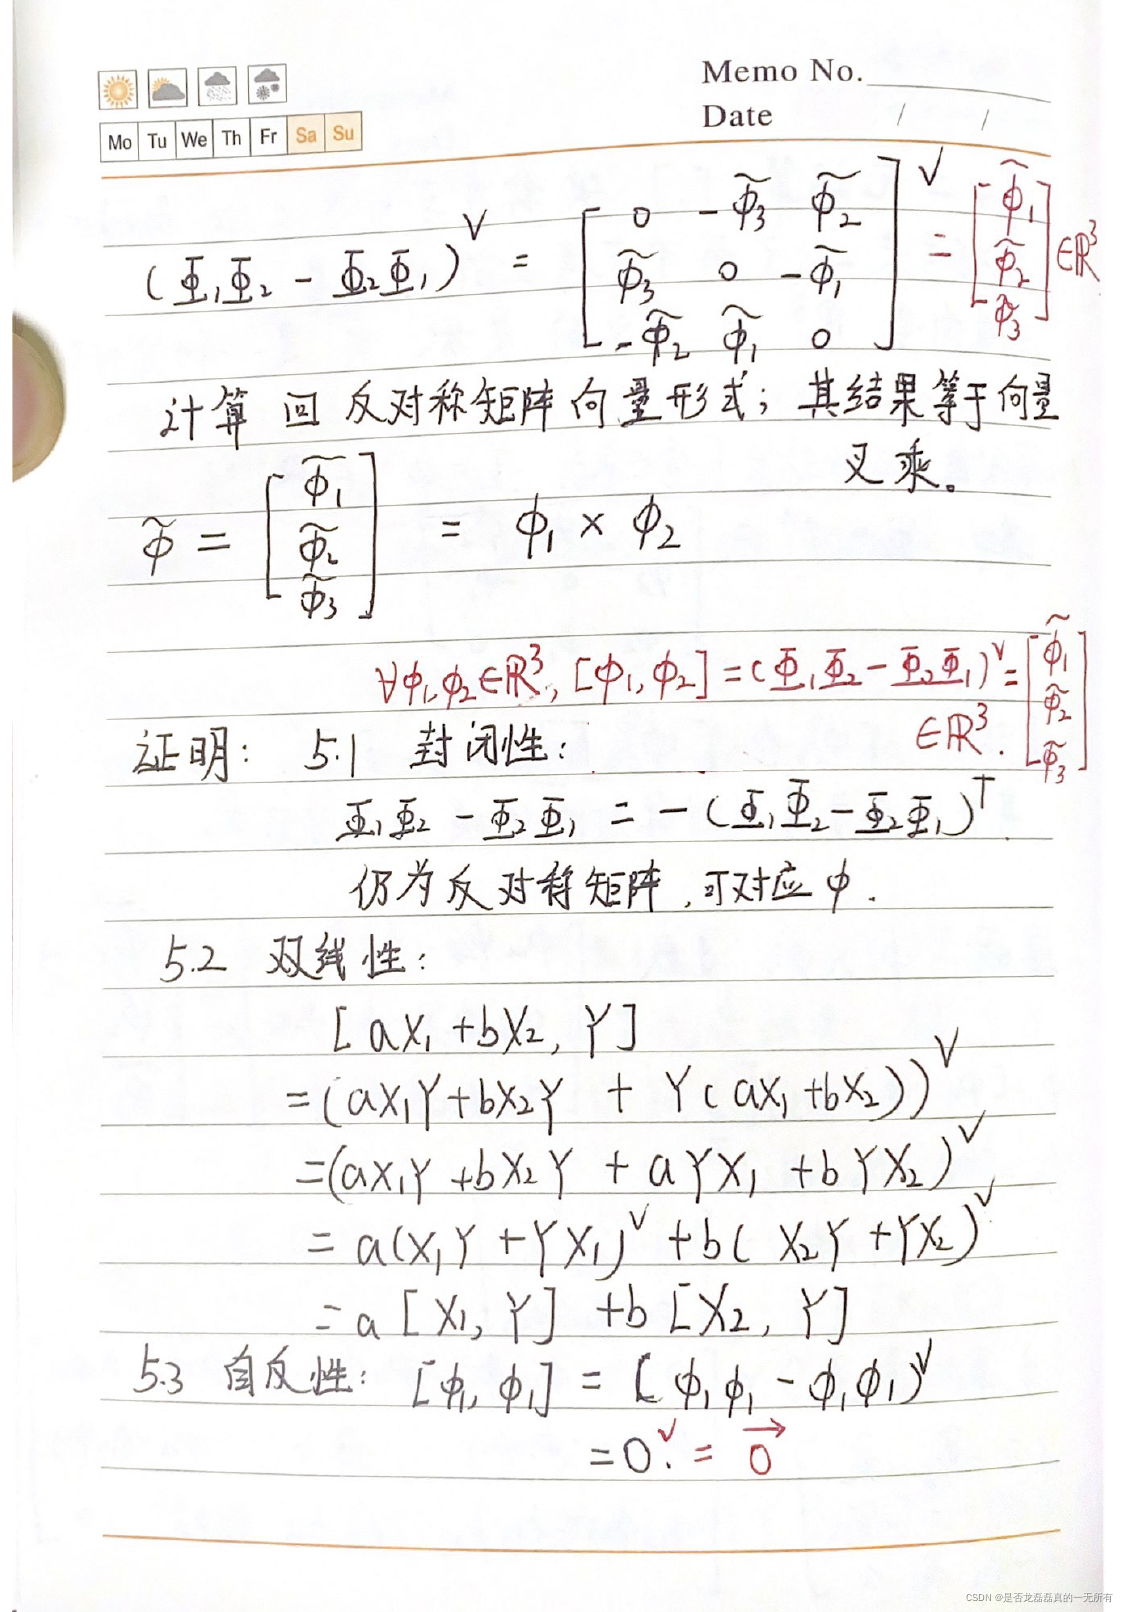 Memo No.
Date / /
Mo Tu We Th Fr Sa Su
(Φ₁Φ₂ - Φ₂Φ₁)^∨ = [0 -φ̃₃ φ̃₂; φ̃₃ 0 -φ̃₁; -φ̃₂ φ̃₁ 0]^∨ = [φ̃₁; φ̃₂; φ̃₃] ∈ℝ³
计算 回 反对称矩阵 向量形式; 其结果等于向量
叉乘。
φ̃ = [φ̃₁; φ̃₂; φ̃₃] = φ₁ × φ₂
∀φ₁,φ₂∈ℝ³, [φ₁, φ₂] = (Φ₁Φ₂ - Φ₂Φ₁)^∨ = [φ̃₁; φ̃₂; φ̃₃]
∈ℝ³.
证明: 5.1 封闭性:
Φ₁Φ₂ - Φ₂Φ₁ = -(Φ₁Φ₂ - Φ₂Φ₁)^T.
仍为反对称矩阵,可对应φ.
5.2 双线性:
[aX₁ + bX₂, Y]
= (aX₁Y + bX₂Y + Y(aX₁ + bX₂))^∨
= (aX₁Y + bX₂Y + aYX₁ + bYX₂)^∨
= a(X₁Y + YX₁)^∨ + b(X₂Y + YX₂)^∨
= a[X₁, Y] + b[X₂, Y]
5.3 自反性: [φ₁, φ₁] = [φ₁φ₁ - φ₁φ₁)^∨
= 0.^∨ = 0⃗
CSDN @是否龙磊磊真的一无所有